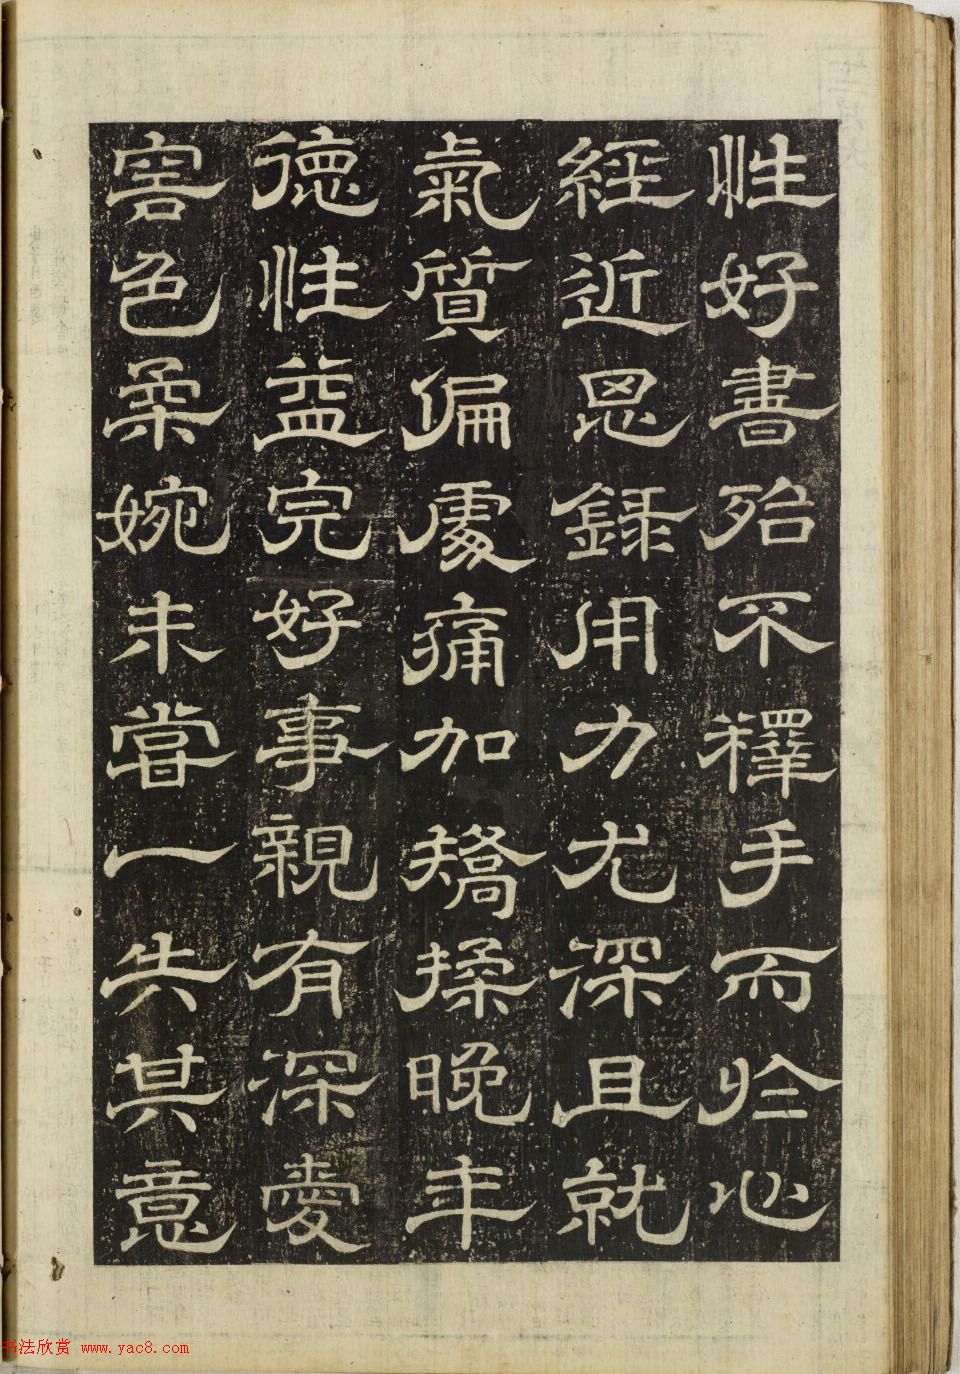 性好書殆不釋手而於心
經近思録用力尤深且就
氣質偏處痛加矯揉晚年
德性益完好事親有深愛
容色柔婉未嘗一失其意
书法欣赏 www.yac8.com